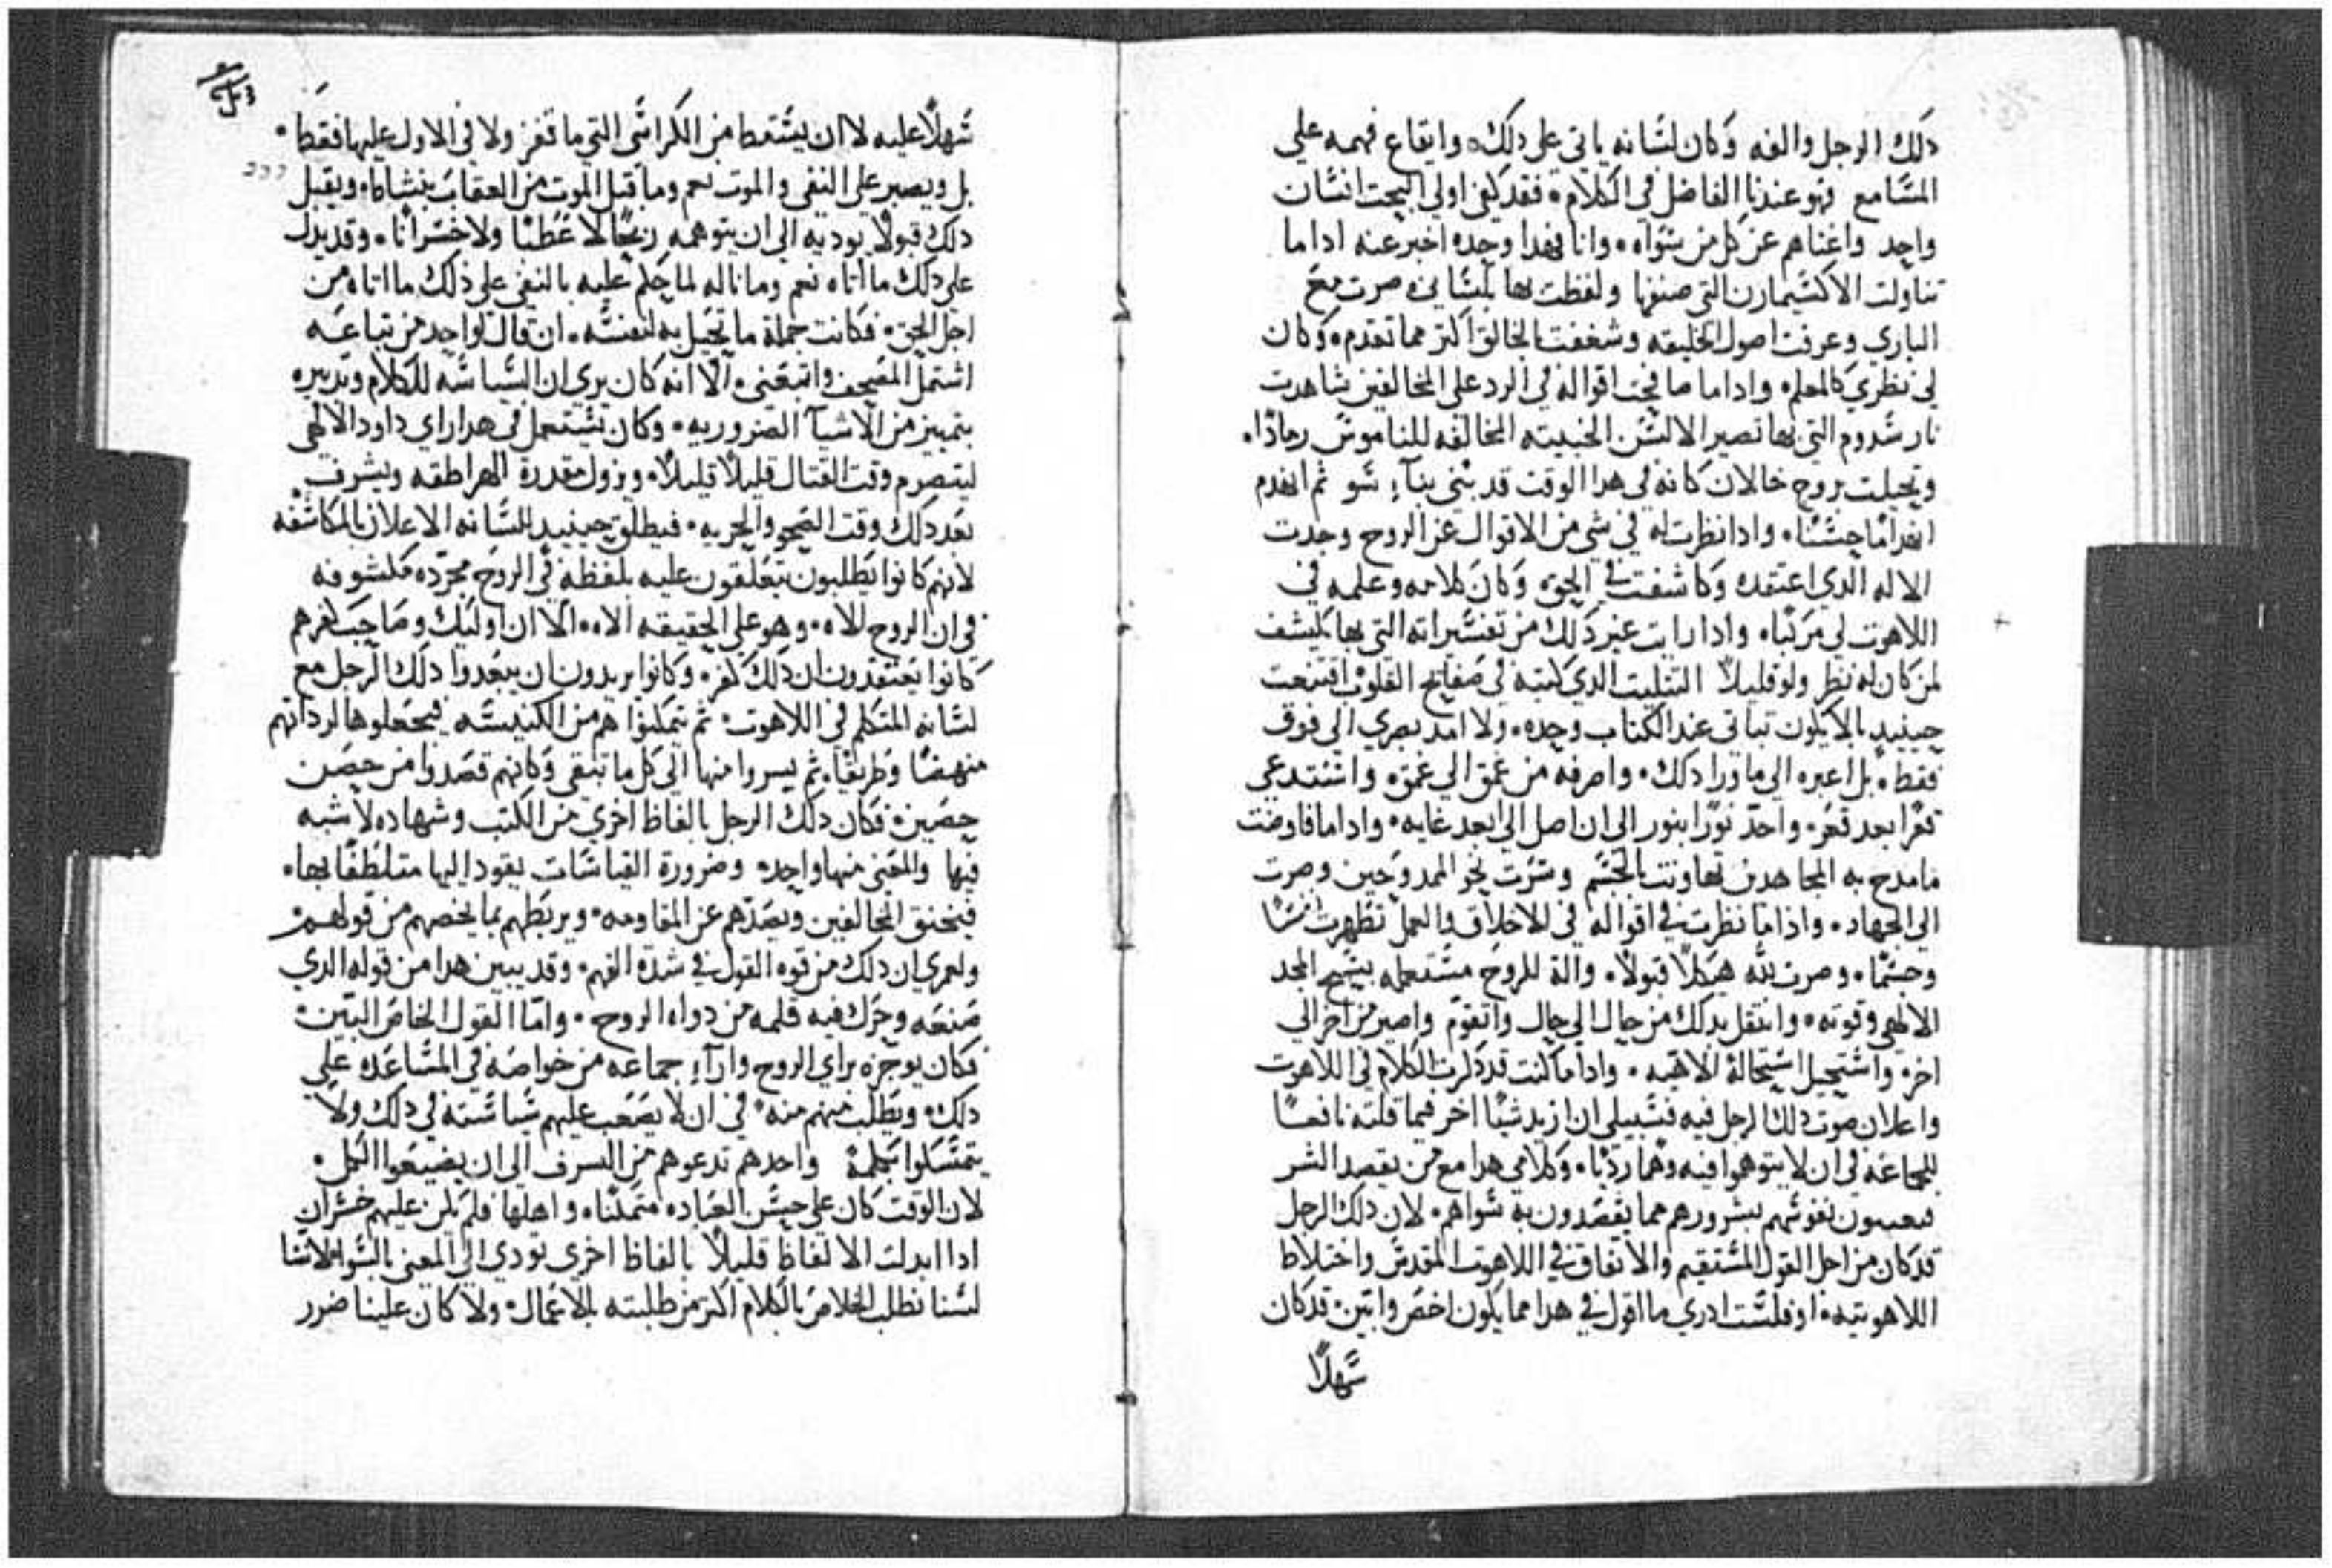 دلك الرجل والفه وكان لسانه ياتي على دلك وايقاع فهمه علي
المسامع فهو عندنا الفاضل في الكلام فقد كفى اولي البحت انسان
واحد واغناهم عن كل من سواه وانا فهدا وحده اخبر عنه ادا ما
تناولت الاكسيمارن التي صنفها ولفظت بها بلساني صرت مع
الباري وعرفت اصول الخليقه وشغفت بالخالق اكتر مما تقدم وكان
لي نظري كالمعلم وادا ما صافحت اقواله في الرد على المخالفين شاهدت
نار سدوم التي بها تصير الالسن الخبيته المخالفه للناموس رمادا
وتخيلت بروج خالان كانه في هدا الوقت قد بني بناء سو ثم انهدم
انهداما حسنا وادا نظرت له في شي من الاقوال عن الروح وجدت
الاله الدي اعتقده وكاشفت في الحق وكان كلامه وعلمه في
اللاهوت لي مرتبا وادا رايت غير دلك من تفسيراته التي بها يكشف
لمن كان له نظر ولو قليلا التتليت الدي كتبه في صفايح القلوب اقتنعت
حينيد بالا يكون تباتي عند الكتاب وحده ولا امد بصري الي فوق
فقط بل اعبره الي ما ورا دلك واصرفه من عمق الي عمق واستدعي
قعرا بعد قعر واخد نورا بنور الى ان اصل الي ابعد غايه وادا ما فاوضت
ما مدح به المجاهدين تهاونت بالجسم وسرت نحو الممدوحين وصرت
الي الجهاد واذا ما نظرت في اقواله في الاخلاق والعمل تطهرت نفسا
وجسما وصرت لله هيكلا قبولا والة للروح مستعمله يسبح المجد
الالهي وقوته وانتقل بدلك من حال الي حال واتقوم واصير من اخر الي
اخر واستحيل استحالة الاهيه وادا ما كنت قد دكرت الكلام في اللاهوت
واعلان صوت دلك الرجل فيه فسبيلي ان ازيد شيا اخر فيما قلته نافعا
للجماعه في ان لا يتوهموا فيه وهما رديا وكلامي هدا مع من يقصد الشر
نفوسهم بشرورهم مما يقصدون به سواهم لان دلك الرجل
قد كان من اجل القول المستقيم والاتفاق في اللاهوت المقدس واختلاط
اللاهوتيه اد فلست ادري ما اقول في هدا مما يكون اخص وابين قد كان
سهلا
سهلا عليه لا ان يسقط من الكراسي التي ما قفز ولا في الاول عليها فقط
بل ويصبر على النفي والموت نعم وما قبل الموت من العقاب بنشاط ويقبل
دلك قبولا يوديه الي ان يتوهمه ربحا لا عطبا ولا خسرانا وقد يدل
علي دلك ما اتاه نعم وما ناله لما حكم عليه بالنفي علي ذلك ما اتاه من
اجل الحق فكانت جملة ما تحيل به لنفسه ان قال لواحد من تباعه
اشتمل المصحف واتبعني الا انه كان يري ان السياسه للكلام وتدبيره
بتمييز من الاشيا الضروريه وكان يستعمل في هدا راي داود الالهي
ليتصرم وقت القتال قليلا قليلا ويزول مقدرة الهراطقه ويشرف
بعد دلك وقت الصحو والحريه فيطلق حينيد للسانه الاعلان بالمكاشفه
لانهم كانوا يطلبون يتعلقون عليه بلفظه في الروح مجرده مكشوفه
في ان الروح للاه وهو علي الحقيقه الاه الا ان اوليك وصاحب كفرهم
كانوا يعتقدون ان ذلك كفر وكانوا يريدون ان يبعدوا دلك الرجل مع
لسانه المتكلم في اللاهوت ثم يتمكنوا هم من الكنيسه فيجعلوها لرداتهم
منهضا وطريقا ثم يسروا منها الي كل ما تبقى وكانهم قصدوا من حصن
حصين فكان دلك الرجل بالفاظ اخري من الكتب وشهاده لا شبه
فيها والمعني منها واحد وضرورة القياسات يقود اليها متلطفا بها
فيخنق المخالفين ويصدهم عن المقاومه ويربطهم بما يخصهم من قولهم
ولعمري ان دلك من قوه القول في شدة الفهم وقد يبين هدا من قوله الدي
صنعه وحرك فيه قلمه من دواه الروح واما القول الخاص البين
فكان يوجزه براي الروح واراء جماعه من خواصه في المساعده علي
دلك ويطلب منهم منه في ان لا يصعب عليهم سياسته في دلك ولا
يتمسكوا بكلمة واحدهم تدعوهم من السرف الي ان يضيعوا الكل
لان الوقت كان علي حسن العباده متمكنا واهلها فلم يكن عليهم خسران
ادا ابدلت الالفاظ قليلا بالفاظ اخري تودي الي المعني بالسوا لاننا
لسنا نطلب الخلاص بالكلام اكتر من طلبته بالاعمال ولا كان علينا ضرر